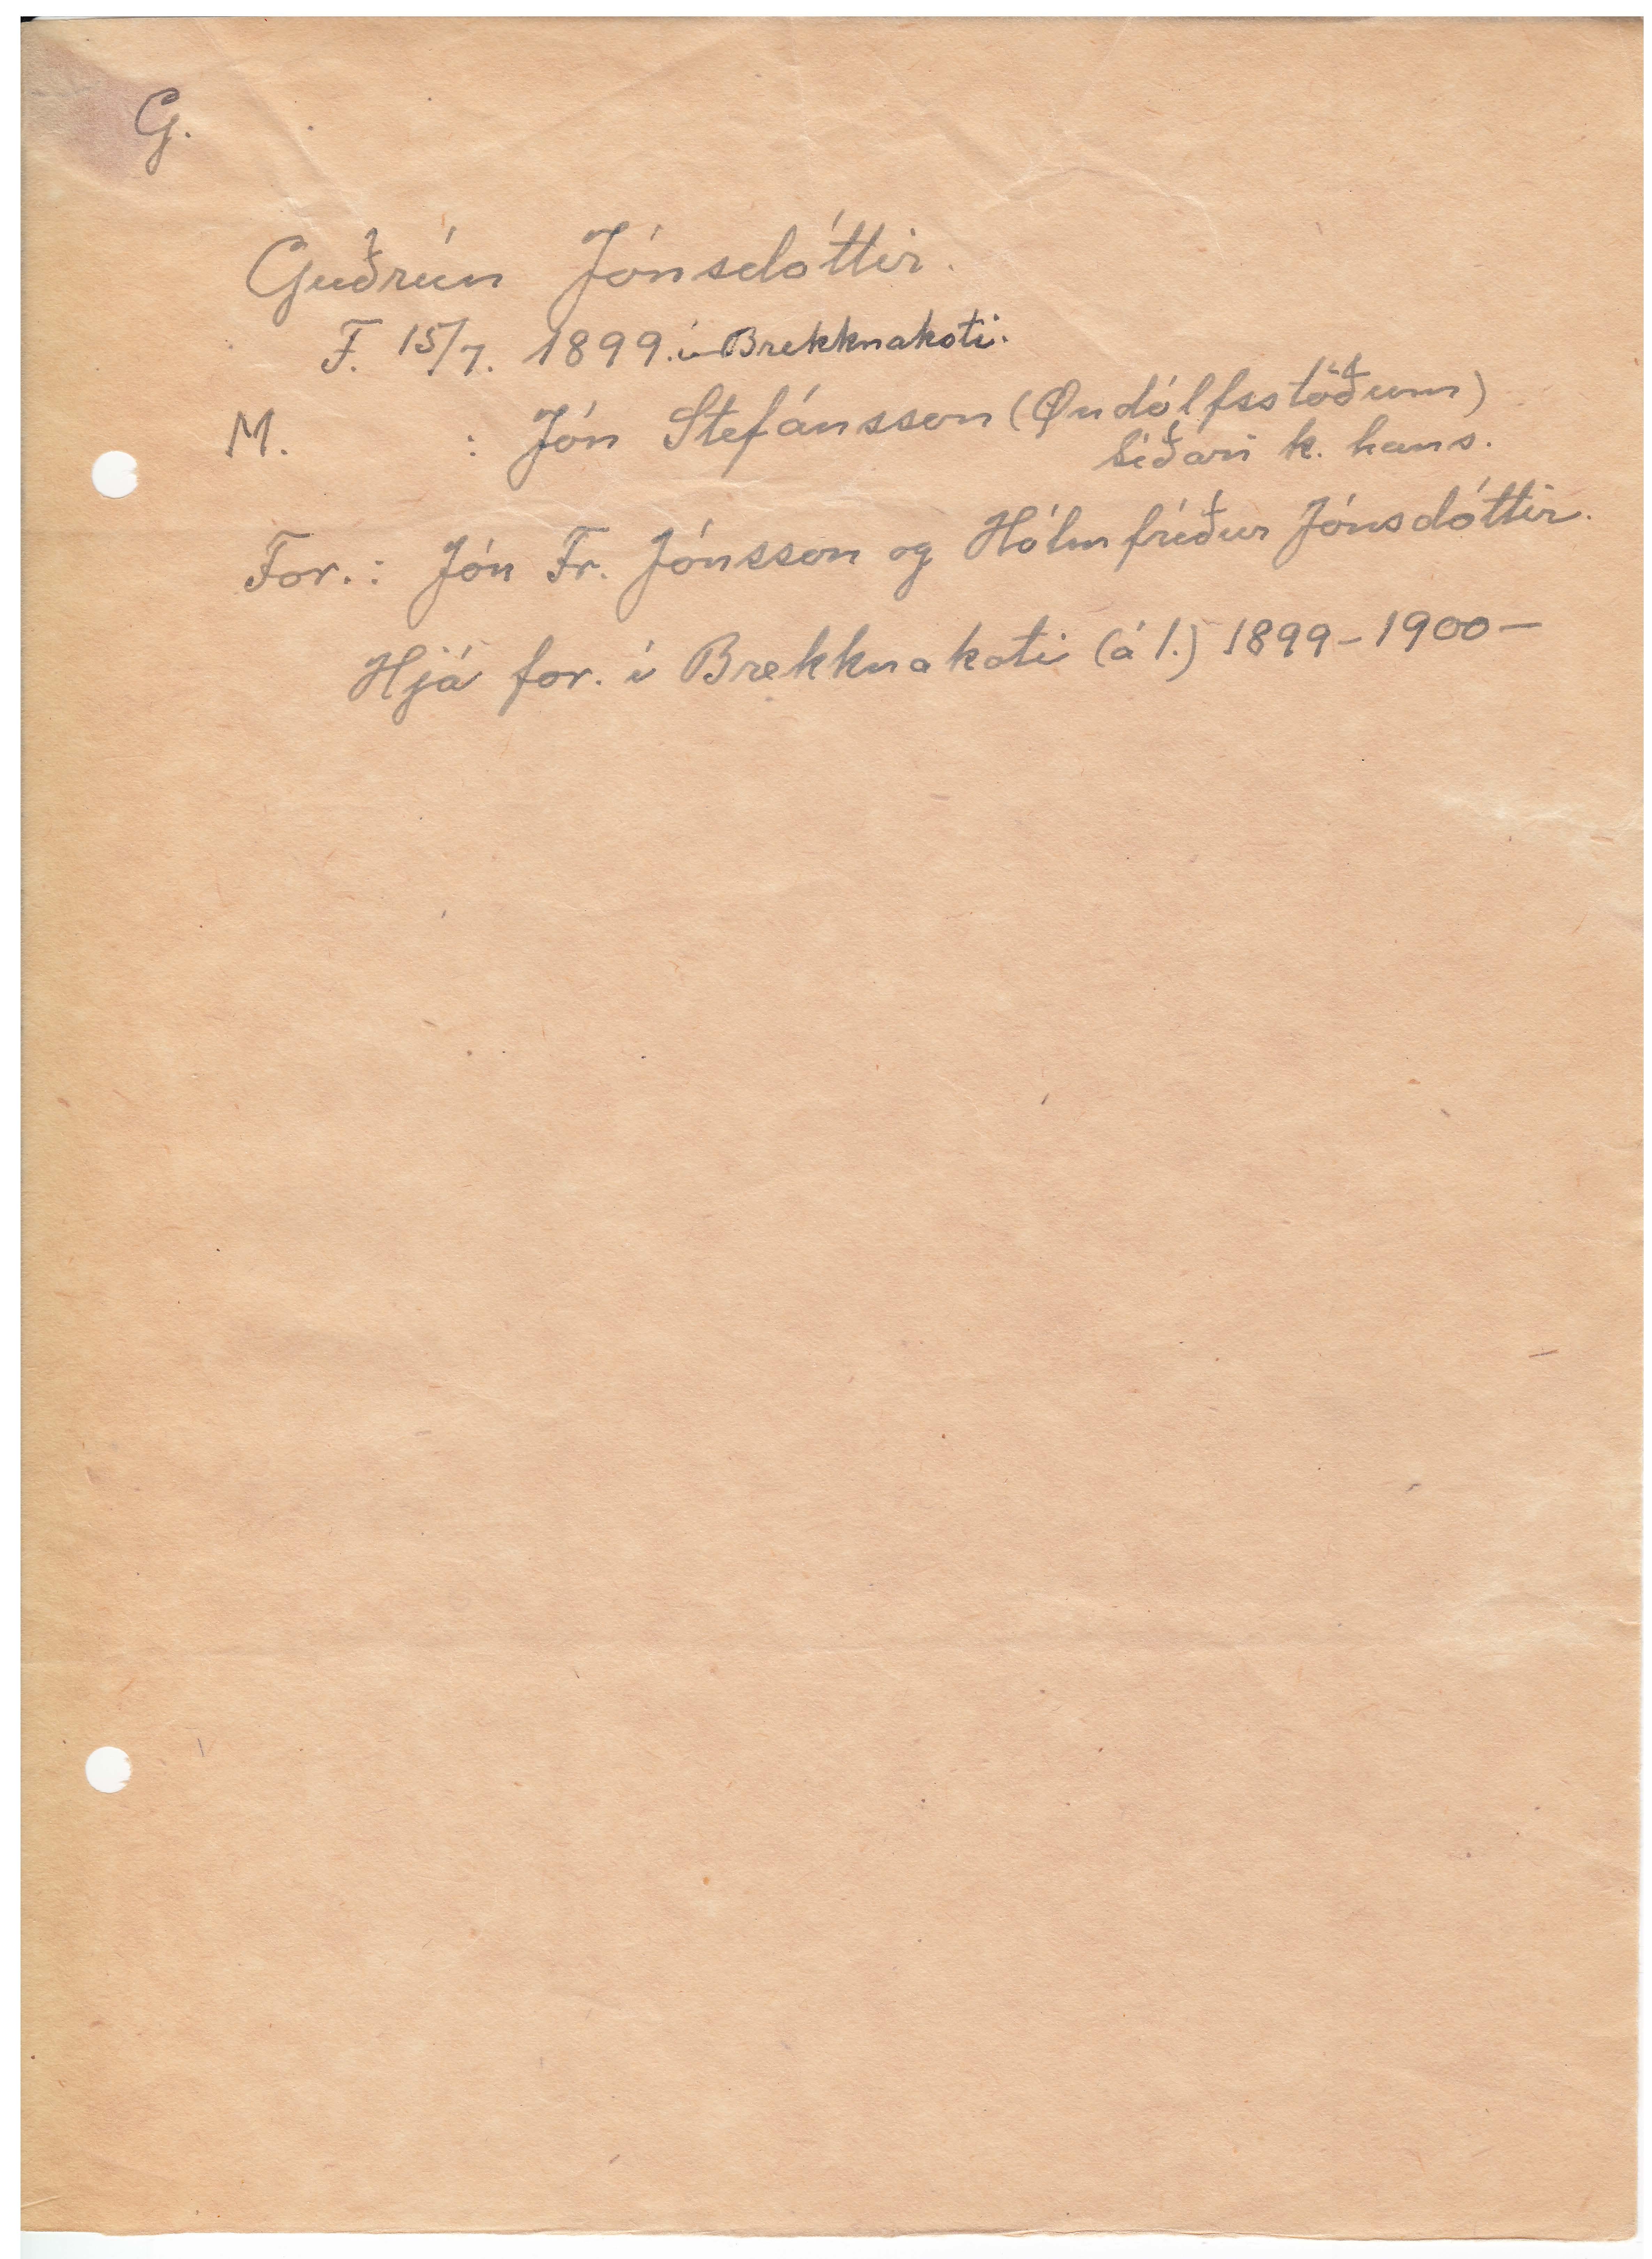 G.
Guðrún Jónsdóttir.
F. 15/7. 1899. í Brekknakoti.
M. : Jón Stefánsson (Öndólfsstöðum)
síðari k. hans.
For.: Jón Fr. Jónsson og Hólmfríður Jónsdóttir.
Hjá for. í Brekknakoti (á 1.) 1899-1900-